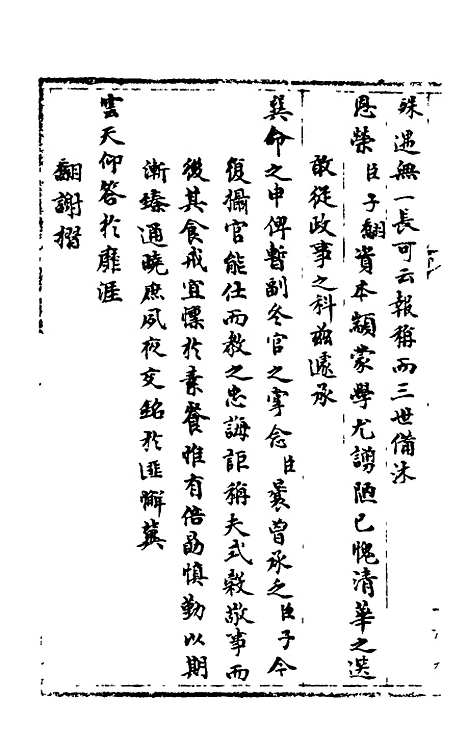 殊遇無一長可云報稱而三世備沐
恩榮臣子翻資本顓蒙學尤謭陋已愧清華之選
敢從政事之科茲遽承
巽命之申俾暫副冬官之掌念臣曩曾承乏臣子今
復攝官能仕而教之忠誨詎稱夫式穀敬事而
後其食戒宜懍於素餐惟有倍勗慎勤以期
漸臻通曉庶夙夜交銘於匪懈冀
雲天仰答於靡涯
翻謝摺